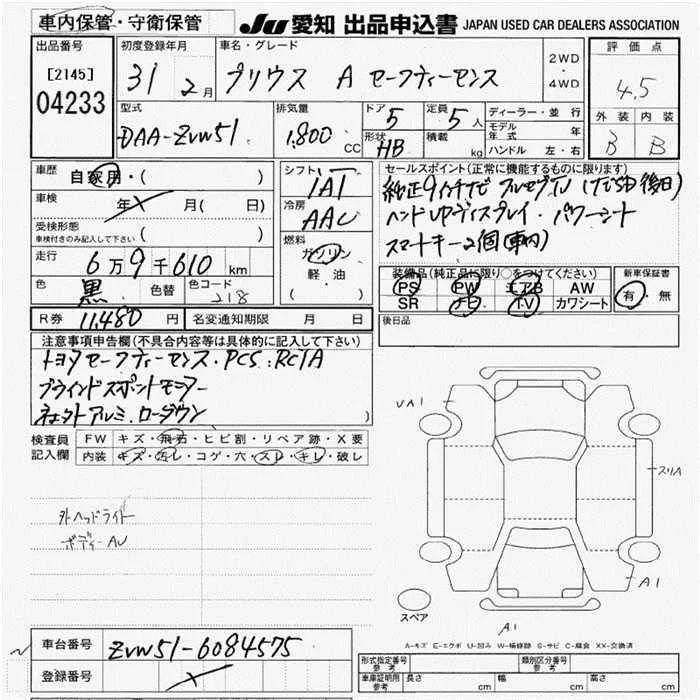 車内保管・守衛保管
JU 愛知 出品申込書 JAPAN USED CAR DEALERS ASSOCIATION
出品番号
[2145]
04233
初度登録年月
31 2月
車名・グレード
プリウス A セーフティーセンス
2WD
・
4WD
評価点
4.5
外装 内装
B B
型式
DAA-ZVW51
排気量
1,800 CC
ドア
5
定員
5人
形状
HB
積載
kg
ディーラー・並行
モデル年式 年
ハンドル 左・右
車歴
自家用・( )
車検
年 X 月( 日)
受検形態
車検付きのみ記入して下さい ( )
走行
6万9千610 km
色
黒
色替
色コード
218
シフト
IAT
冷房
AAC
燃料
ガソリン
軽油
( )
セールスポイント(正常に機能するものに限ります)
純正9インチナビ フルセグTV
ハンドルヒーター
スマートキー2個(車内)
装備品(純正品に限り○をつけてください)
PS PW エアB AW
SR ナビ TV カワシート
新車保証書
有・無
R券 11,480 円
名変通知期限 月 日
後日品
注意事項申告欄(不具合内容等は具体的に記入して下さい)
トヨタセーフティーセンス・PCS・RCTA
ブラインドスポットモニター
アルミ・ローダウン
検査員
記入欄
FW キズ・飛石・ヒビ割・リペア跡・X要
内装 キズ・汚レ・コゲ・穴・スレ・キレ・破レ
外ヘッドライト
ボディーAU
UA1
スリA
A1
A1
スペア
A-キズ E-エクボ U-凹み W-補修跡 S-サビ C-腐食 XX-交換済
車台番号
ZVW51-6084575
登録番号
X
形式指定番号
参考
類別区分番号
参考
車庫証明用
参考
長さ cm
幅 cm
高さ cm